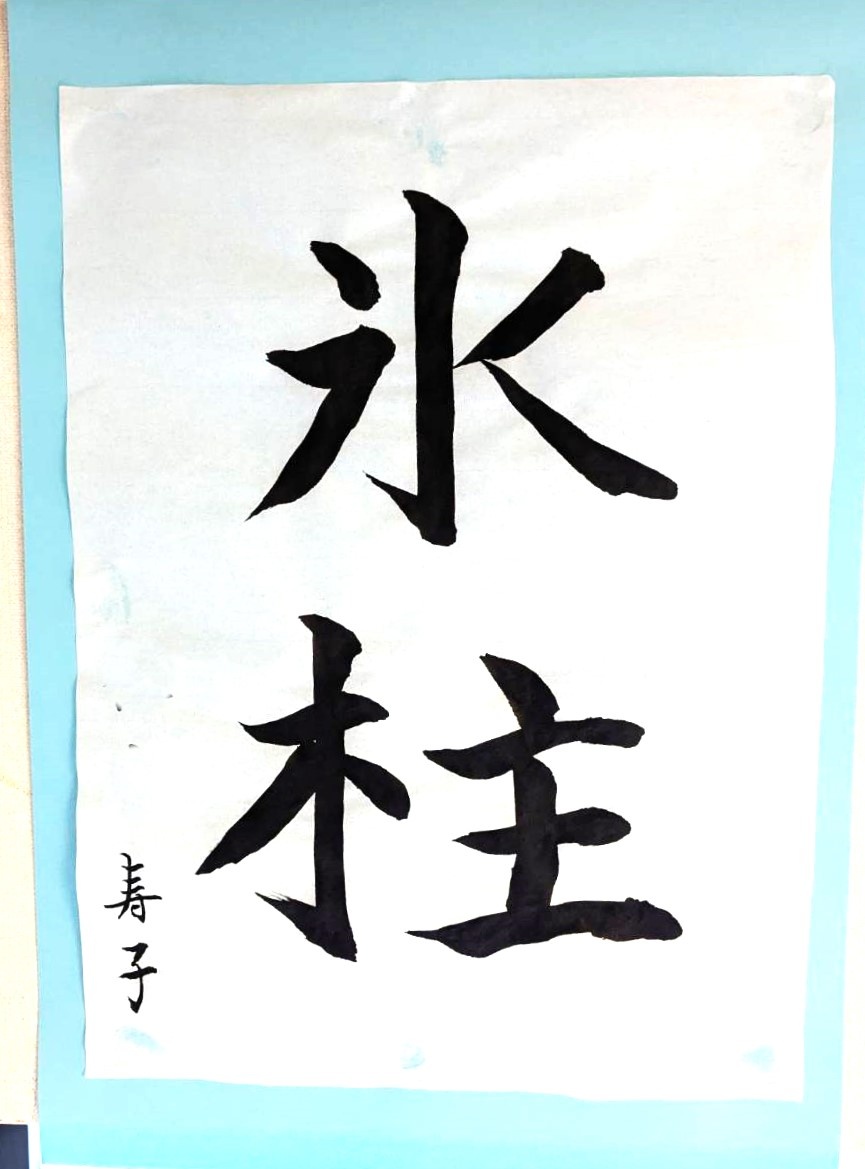 氷柱
寿子